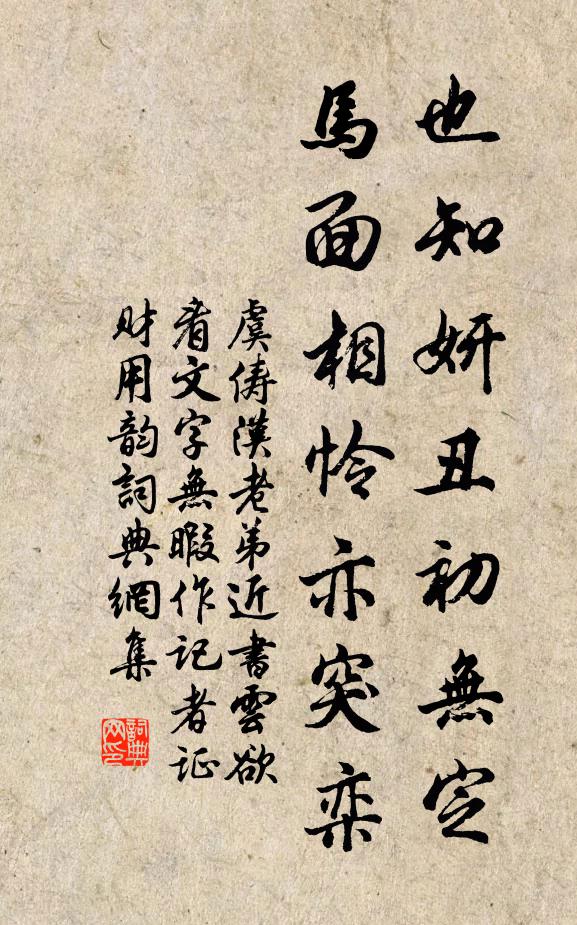 也知妍丑初無定
馬面相怜亦突奕
虞俦漢老弟近書雲欲
看文字無暇作記者证
财用韵詞典網集
詞典网印